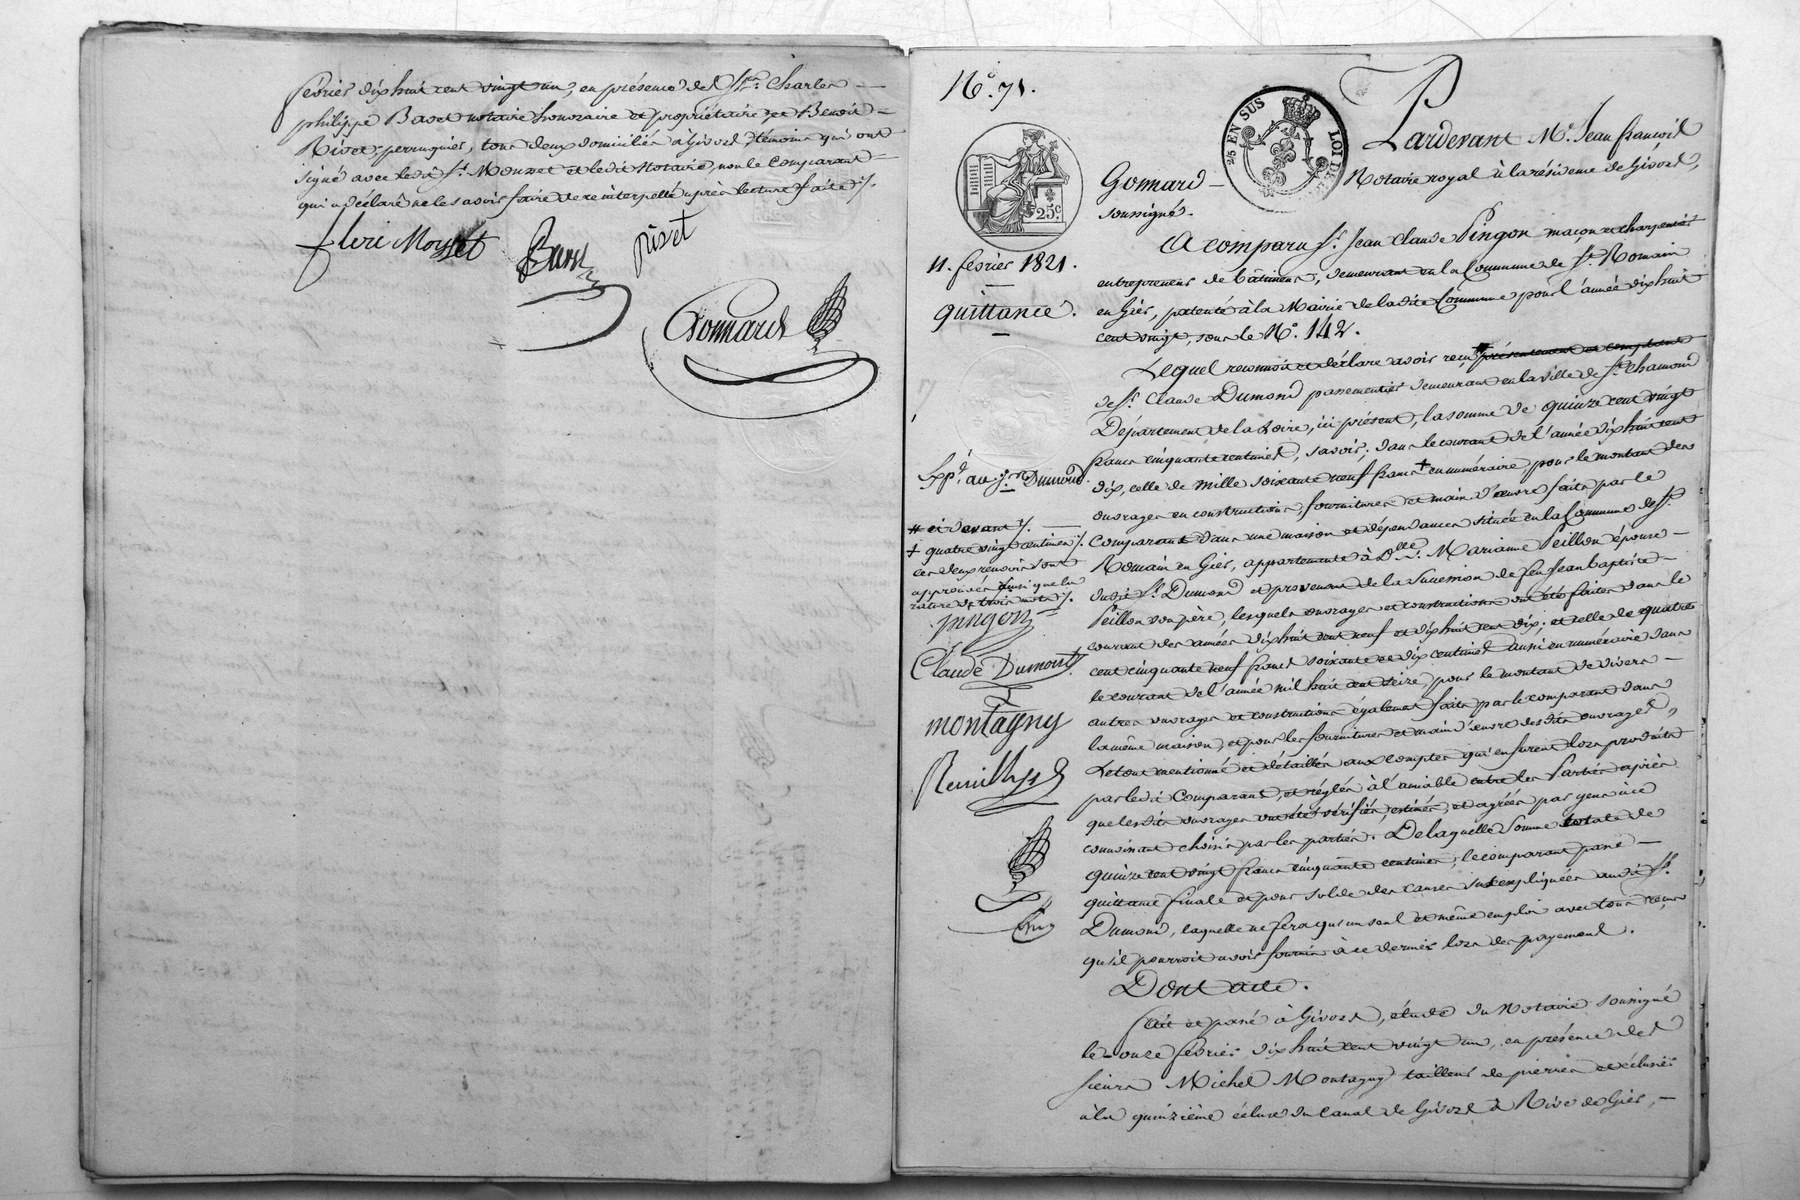 fevrier dix huit cent vingt un, en présence de Sr. Charles
philippe Bavet notaire honoraire et propriétaire et Benoit
Rivet, perruquier, tous deux domiciliés à Givors, témoins qui ont
signé avec ledit Sr. Mousset et ledit Notaire, non le Comparant
qui a déclaré ne le savoir faire de ce interpellé après lecture faite ./.
fleri Mousset
Bavet
Rivet
Gomard
N°. 71.
25 c.
11. fevrier 1821.
quittance.
¾ EN SUS
LOI DE
Pardevant Me. Jean françois
Gomard Notaire royal à la résidence de Givors,
soussigné.
A comparu Sr. Jean Claude Pingon maçon et charpentier
entrepreneur de bâtimens, demeurant en la Commune de St. Romain
en Giés, patenté à la Mairie de ladite Commune pour l'année dix huit
cent vingt, sous le N°. 142.
Lequel reconnoit et déclare avoir reçu # présentement et comptant
de Sr. Claude Dumond passementier demeurant en la ville de St. Chamond
Département de la Loire, ici présent, la somme de quinze cent vingt
francs cinquante centimes, savoir; dans le courant de l'année dix huit cent
dix, celle de mille soixante neuf francs + en numéraire, pour le montant des
ouvrages en constructions, fournitures et main d'œuvre faits par le
Comparant dans une maison et dépendances située en la Commune de St.
Romain en Giés, appartenante à Dlle. Marianne Peillon épouse
dudit Sr. Dumond et provenant de la Succession de feu Jean baptiste
Peillon son père, lesquels ouvrages et constructions ont été faites dans le
courant des années dix huit cent neuf et dix huit cent dix; et celle de quatre
cent cinquante neuf francs soixante et dix centimes aussi en numéraire dans
le courant de l'année mil huit cent seize, pour le montant de divers
autres ouvrages et constructions également faits par le comparant dans
la même maison, et pour les fournitures et main d'œuvre desdits ouvrages,
Le tout mentionné et détaillés aux comptes qui en furent lors produits
par ledit Comparant, et réglés à l'amiable entre les Parties après
que lesdits ouvrages ont été vérifiés, estimés, et agréés par gens à ce
connoissant choisis par les parties. De laquelle Somme totale de
quinze cent vingt francs cinquante centimes, le comparant passe
quittance finale et pour solde des causes susexpliquées audit Sr.
Dumond, laquelle ne fera qu'un seul et même emploi avec tous reçus
qu'il pourroit avoir fournis à ce dernier lors des payemens.
Dont acte.
fait et passé à Givors, étude du Notaire soussigné
le onze fevrier dix huit cent vingt un, en présence des
sieurs Michel Montagny tailleur de pierres et éclusier
à la quinzième écluse du Canal de Givors à Rive de Giés,
Expd. au Sr. Dumond.
# ci devant ./.
+ quatre vingt centimes ./.
ces deux renvois sont
approuvés ainsi que la
rature de trois mots ./.
pingon
Claude Dumond
montagny